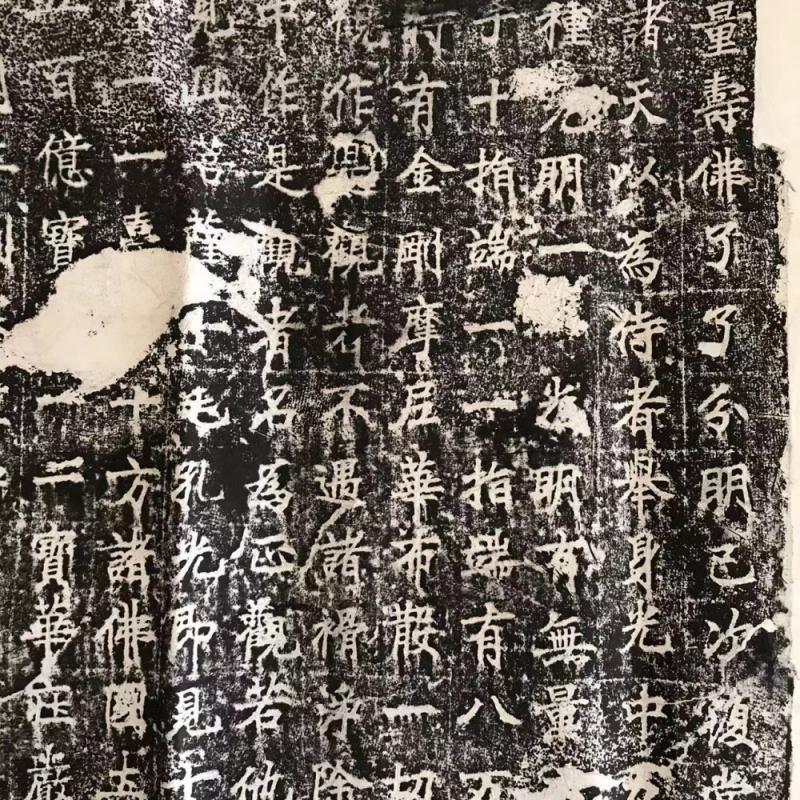 量壽佛了了分明已次復當
諸天以為侍者舉身光中五
種光明一一光明有無量
手十指端一一指端有八万
行有金剛摩尼華布散一切
觀作是觀者不遇諸禍淨除
中作是觀者名為正觀若他
見此菩薩一毛孔光即見十
一十方諸佛國土
五百億寶一一寶華莊嚴